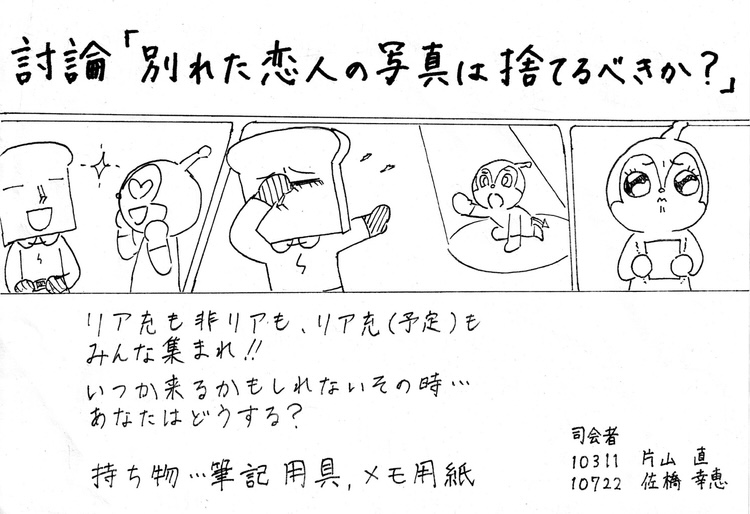 討論「別れた恋人の写真は捨てるべきか?」
リア充も非リアも、リア充(予定)も
みんな集まれ!!
いつか来るかもしれないその時…
あなたはどうする?
持ち物…筆記用具,メモ用紙
司会者
10311 片山 直
10722 佐橋 幸恵